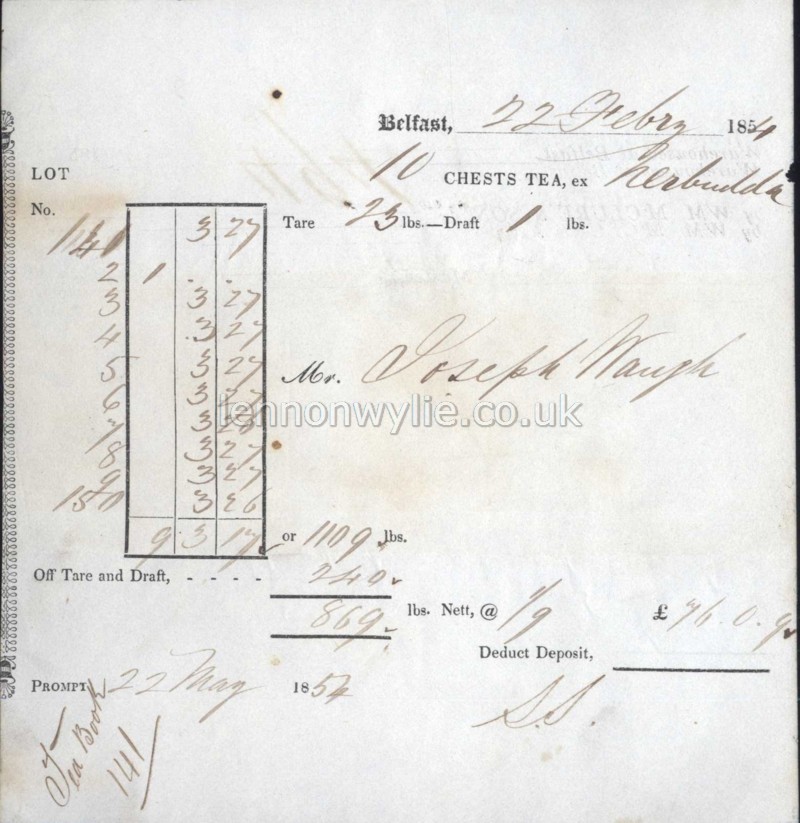 Belfast, 22 Febry 1854
LOT 10 CHESTS TEA, ex Nerbudda
No. Tare 23 lbs.—Draft 1 lbs.
1141 3 27
2 1 . .
3 3 27
4 3 27
5 3 27
Mr. Joseph Waugh
6 3 27
lennonwylie.co.uk
7 3 28
8 3 27
9 3 27
1150 3 26
9 3 17 or 1109 lbs.
Off Tare and Draft, - - - - 240
869 lbs. Nett, @ 1/9 £ 76.0.9
Deduct Deposit,
PROMPT 22 May 1854
S.S.
Tea Book
141